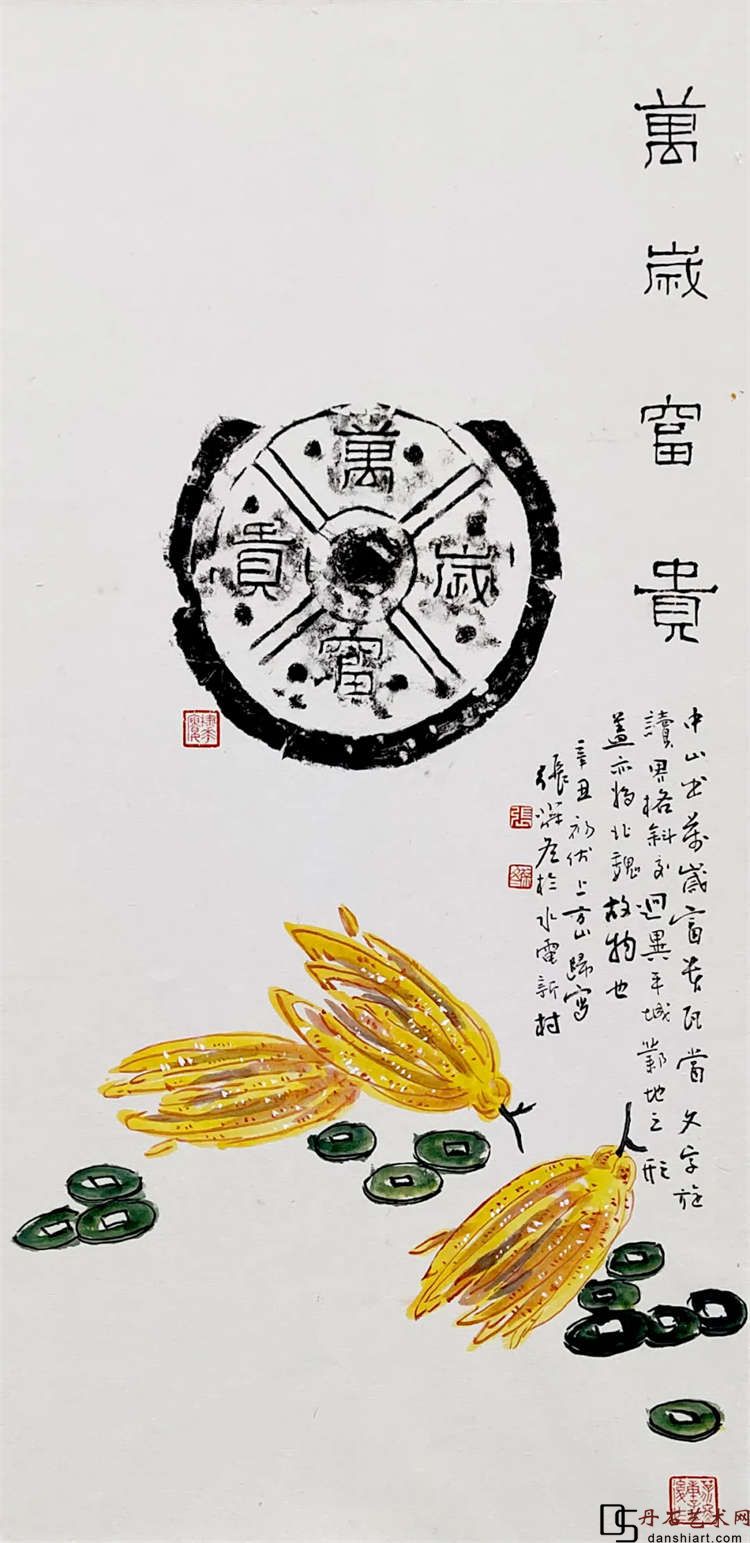 萬歲富貴
中山出萬歲富貴瓦當文字旋
讀界格斜交迥異平城鄴地之形
蓋亦為北魏故物也
辛丑初伏上方山歸寫
張濼居於水電新村
萬
歲
富
貴
張
丹石艺术网
danshiart.com